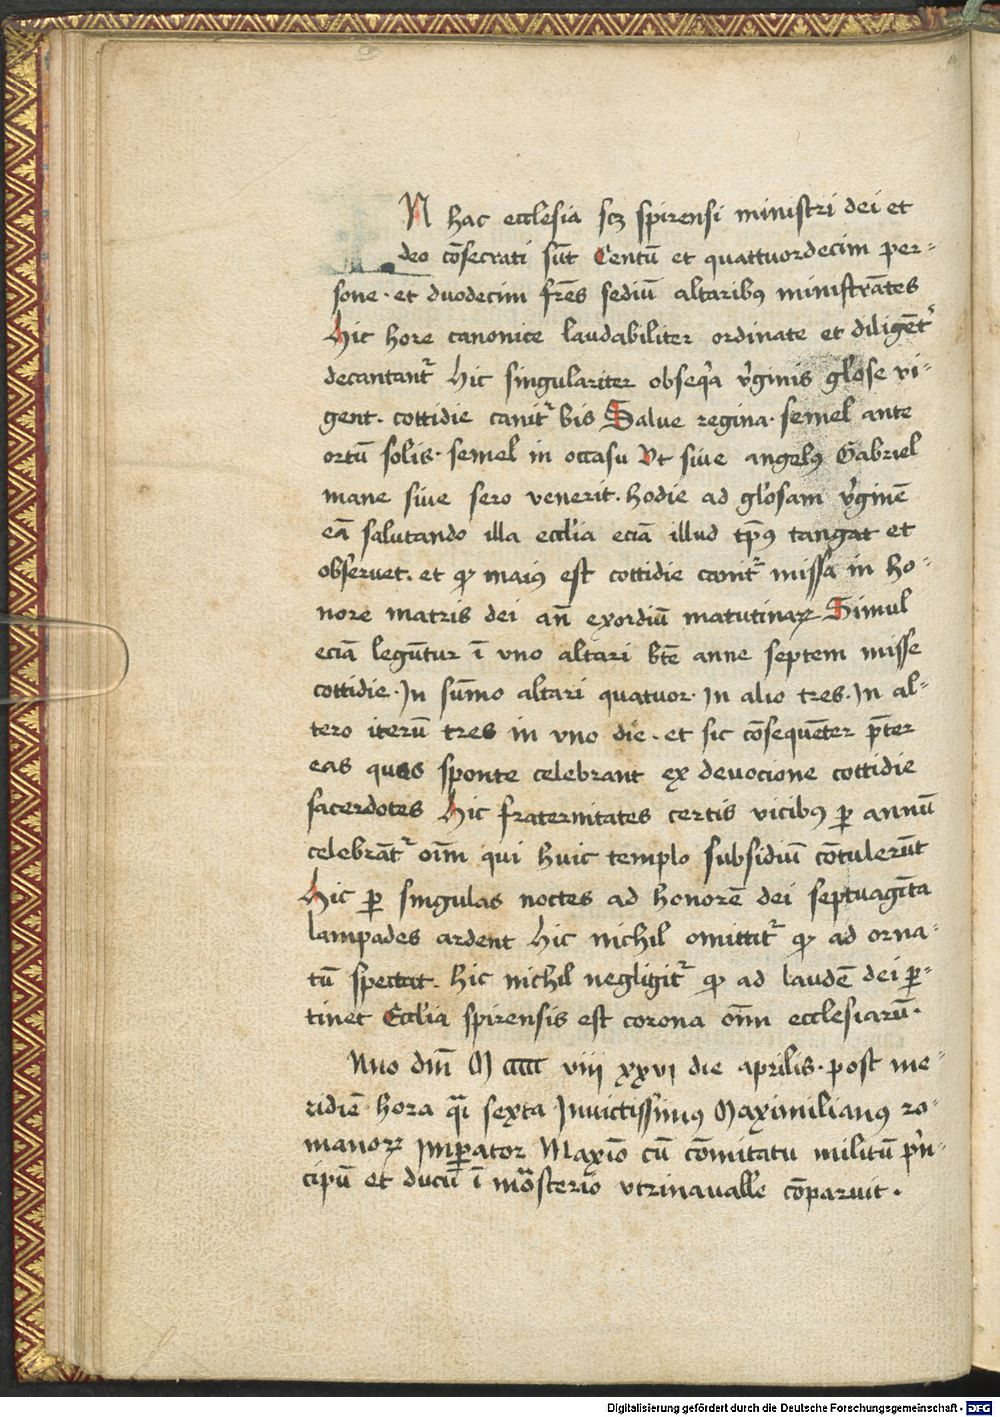 N hac ecclesia scz spirensi ministri dei et
deo cōsecrati sūt Centū et quattuordecim per-
sone · et duodecim frēs sediū altaribꝰ ministrātes
Hic hore canonice laudabiliter ordinate et diligēt᷑
decantant᷑ Hic singulariter obseqa v̓ginis gl̓ose vi-
gent · cottidie canit᷑ bis Salue regina · semel ante
ortū solis · semel in occasu Vt siue angelꝰ Gabriel
mane siue sero venerit · hodie ad gl̓osam v̓ginē
eā salutando illa eccl̓ia eciā illud tp̄ꝰ tangat et
obseruet · et qꝫ maiꝰ est cottidie canit᷑ missa in ho-
nore matris dei an̄ exordiū matutinaꝝ Simul
eciā legūtur ī vno altari btē anne septem misse
cottidie · In sūmo altari quatuor · In alio tres · In al-
tero iterū tres in vno die · et sic cōsequēter p̄ter
eas quas sponte celebrant ex deuocione cottidie
sacerdotes Hic fraternitates certis vicibꝰ ꝑ annū
celebrāt᷑ oīm qui huic templo subsidiū cōtulerūt
Hic ꝑ singulas noctes ad honorē dei septuagīta
lampades ardent Hic nichil omittit᷑ qꝫ ad orna-
tū spectat · Hic nichil negligit᷑ qꝫ ad laudē dei ꝑ-
tinet Eccl̓ia spirensis est corona oīm ecclesiarū ·
Nno dm̄ M ccccc viii xxvi die aprilis · post me-
ridiē hora q̄i sexta Inuictissimꝰ Maximilianꝰ ro-
manoꝝ Imꝑator Maxīo cū cōmitatu militū p̓n-
cipū et ducū ī mōsterio vtrinaualle cōparuit ·
Digitalisierung gefördert durch die Deutsche Forschungsgemeinschaft - DFG